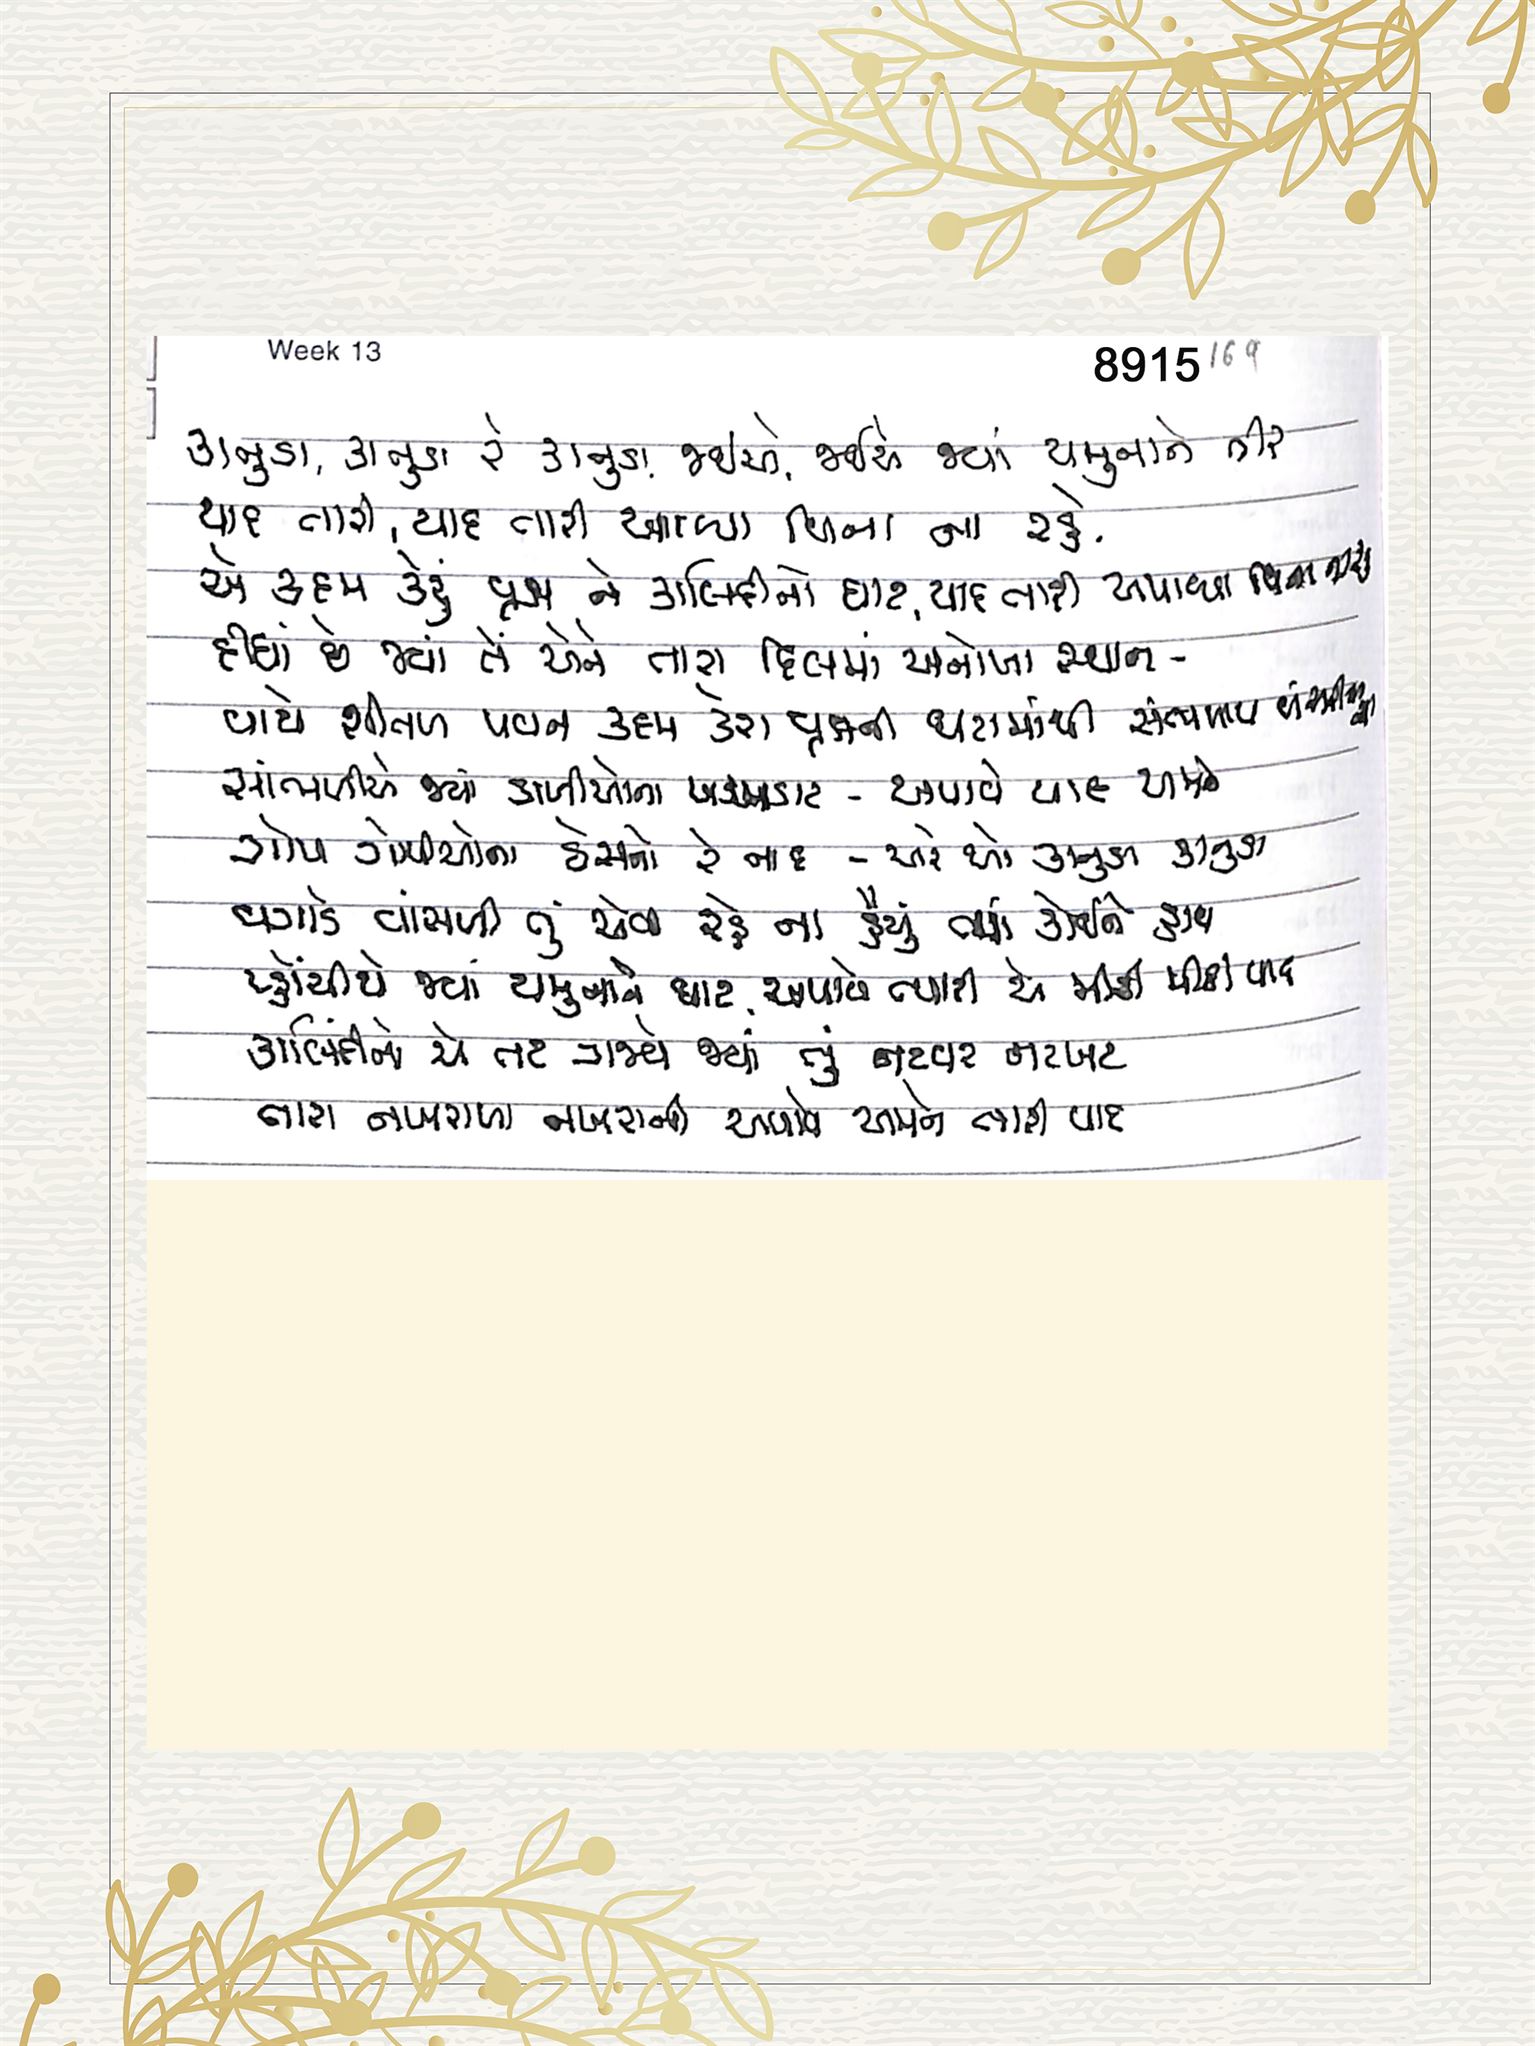 Week 13
8915 169
કાનુડા, કાનુડા રે કાનુડા, જઈએ, જઈએ જ્યાં યમુનાને તીર
યાદ તારી, યાદ તારી આવ્યા વિના ના રહે.
એ કદમ કેરું વૃક્ષ ને કાલિંદીનો ઘાટ, યાદ તારી અપાવ્યા વિના
દીધાં છે જ્યાં તેં એને તારા દિલમાં અનોખા સ્થાન -
વાયે શીતળ પવન કદમ કેરા વૃક્ષની ઘટામાંથી સંભળાય
સાંભળીએ જ્યાં ડાળીઓના ખડખડાટ - અપાવે યાદ અમને
ગોપ ગોપીઓના ઠેસનો રે નાદ - અરે ઓ કાનુડા કાનુડા
વગાડે વાંસળી તું એવી રહે ના હૈયું ત્યાં કોઈને હાથ
પહોંચીયે જ્યાં યમુનાને ઘાટ, અપાવે ત્યારી એ મીઠી મીઠી યાદ
કાલિંદીનો એ તટ ગજ્યે જ્યાં તું નટવર નટખટ
તારા નખરાળા નખરાની અપાવે અમને તારી યાદ